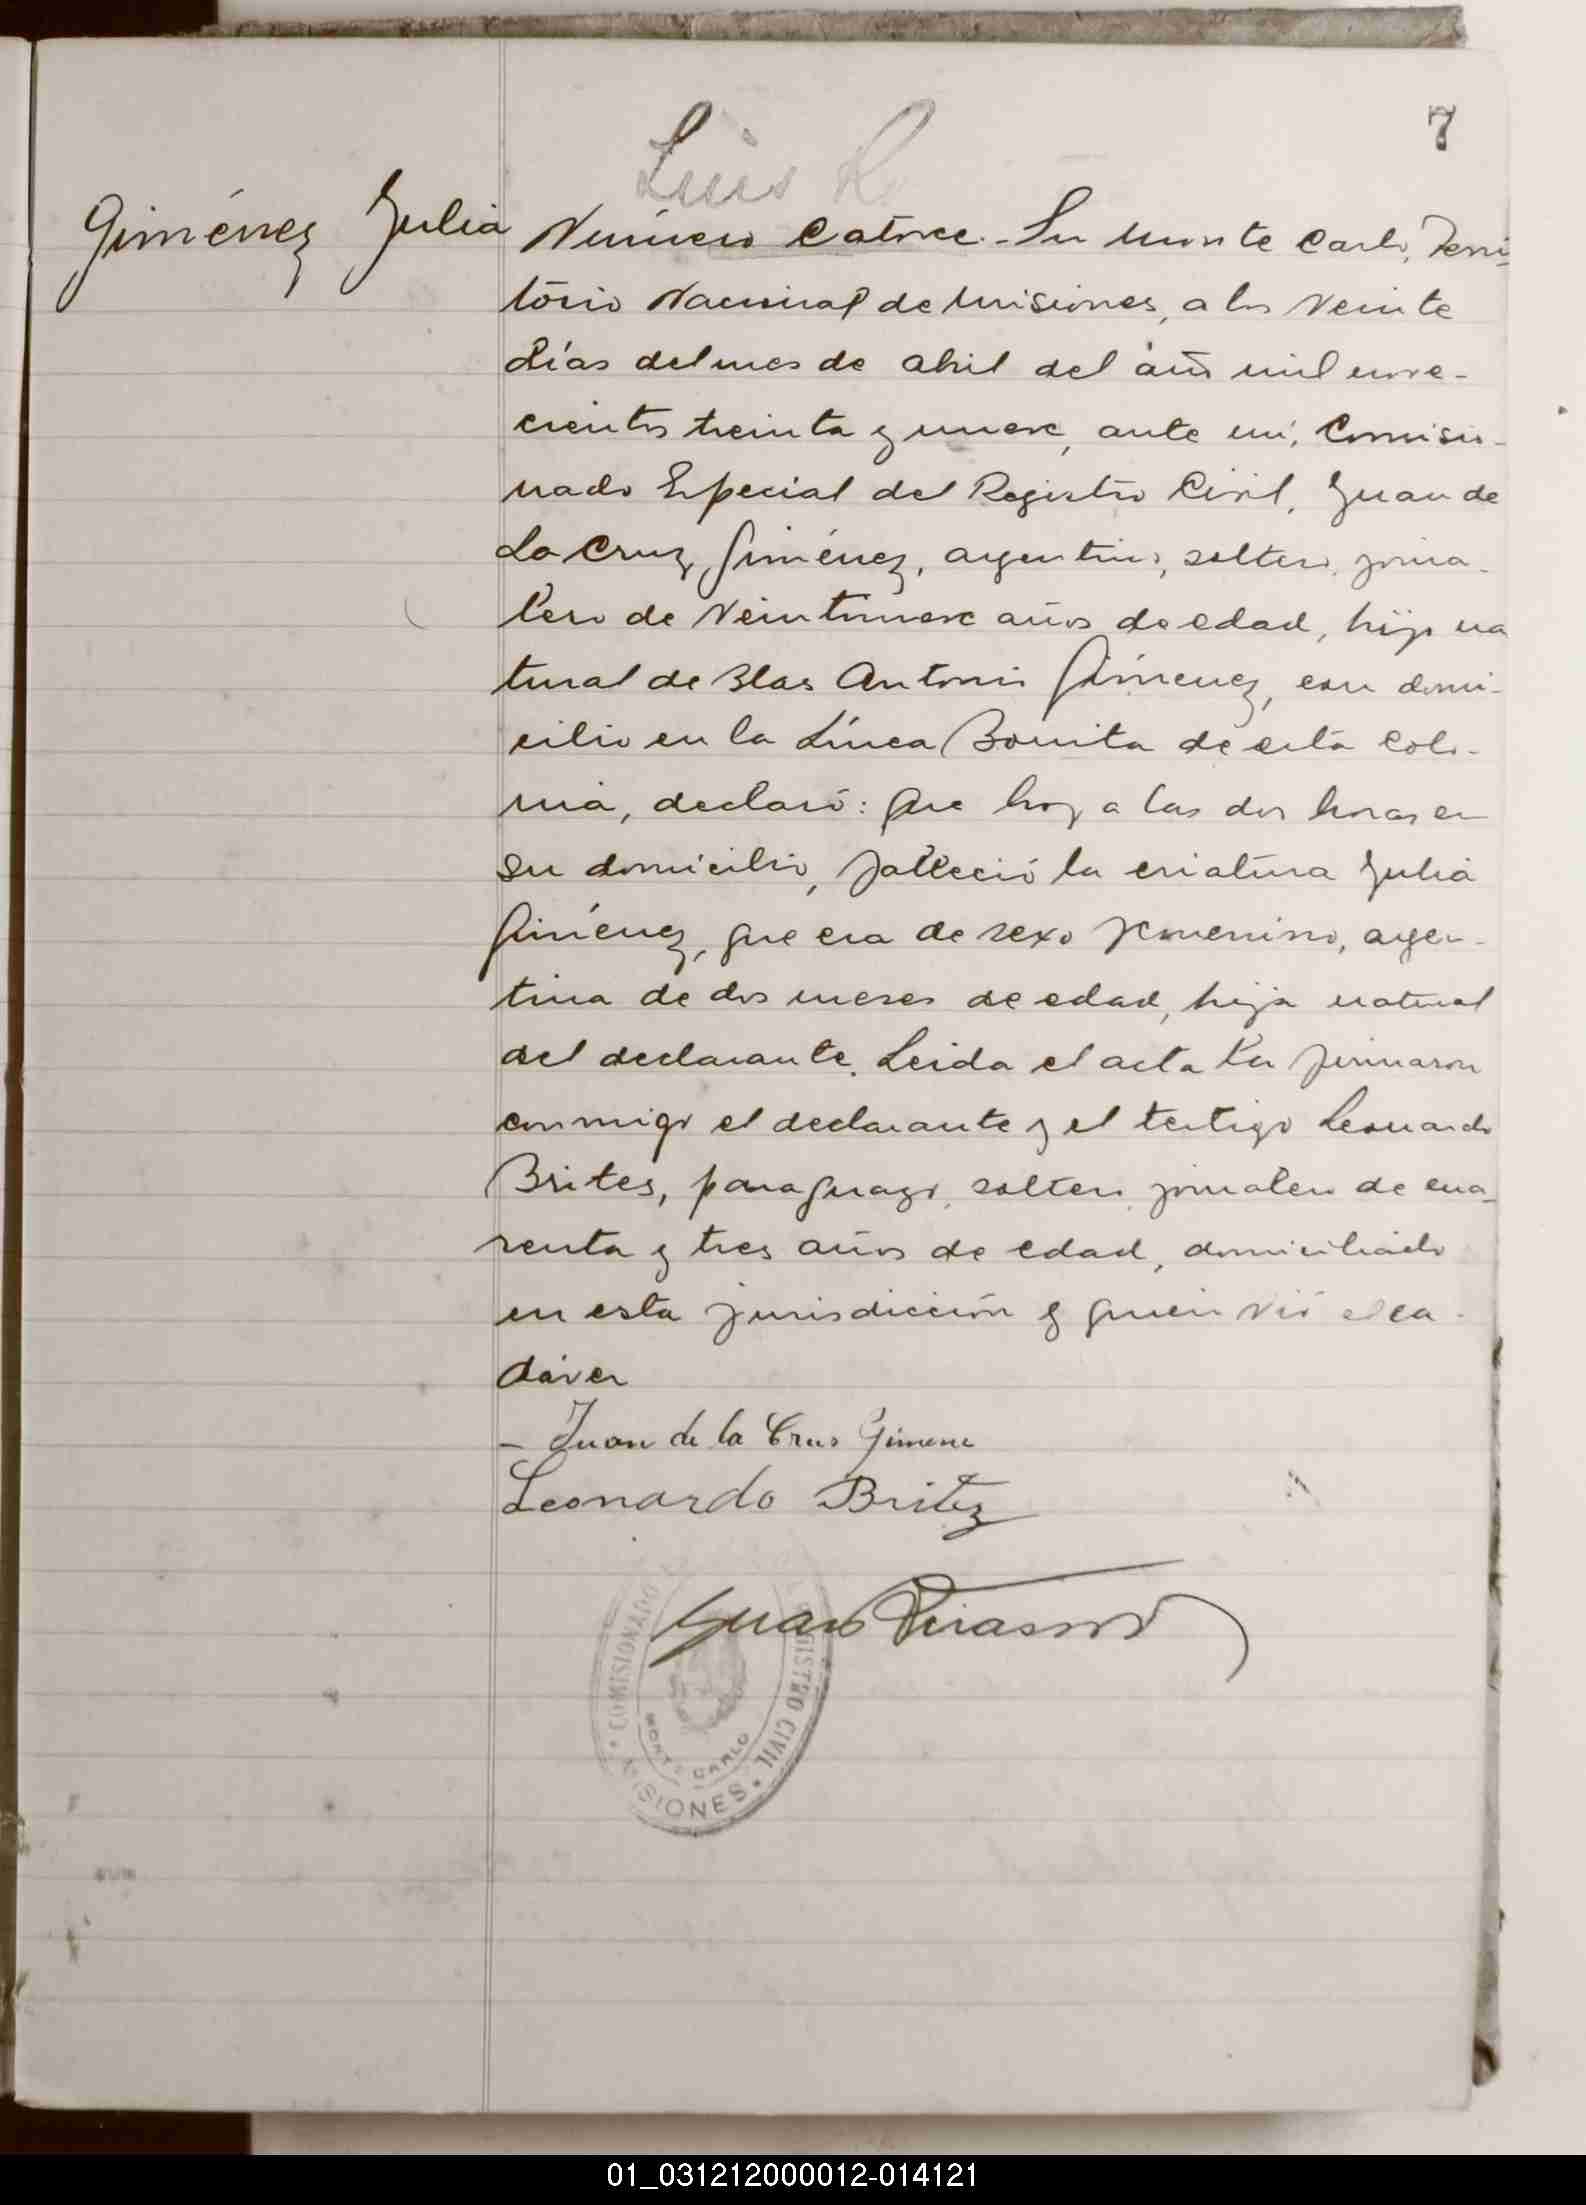 7
Luis R
Giménez Julia
Número Catorce.- En Monte Carlo, Terri-
tório Nacional de Misiones, a los veinte
días del mes de abril del año mil nove-
cientos treinta y nueve, ante mí, Comisio-
nado Especial del Registro Civil, Juan de
La Cruz Giménez, argentino, soltero, jorna-
lero de veintinueve años de edad, hijo na
tural de Blas Antonio Giménez, con domi-
cilio en la Línea Bonita de esta colo-
nia, declaró: Que hoy a las dos horas en
su domicilio, falleció la criatura Julia
Giménez, que era de sexo femenino, argen-
tina de dos meses de edad, hija natural
del declarante. Leida el acta la firmaron
conmigo el declarante y el testigo Leonardo
Brites, paraguayo, soltero, jornalero de cua-
renta y tres años de edad, domiciliado
en esta jurisdicción y quien vió el ca-
dáver
- Juan de la Crus Gimene
Leonardo Britez
Juan
COMISIONADO
REGISTRO CIVIL
MONTE CARLO
MISIONES
01_031212000012-014121